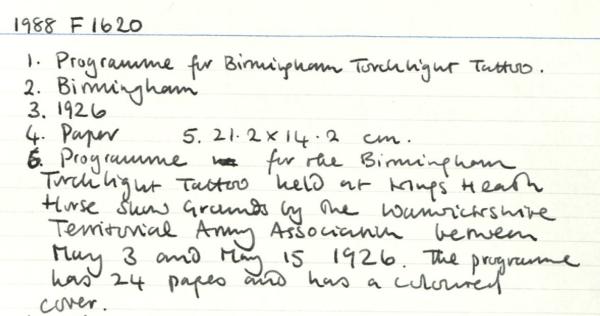 1988 F 1620
1. Programme for Birmingham Torchlight Tattoo.
2. Birmingham
3. 1926
4. Paper 5. 21.2 x 14.2 cm.
6. Programme for the Birmingham
Torchlight Tattoo held at Kings Heath
Horse Show Grounds by the Warwickshire
Territorial Army Association between
May 3 and May 15 1926. The programme
has 24 pages and has a coloured
cover.